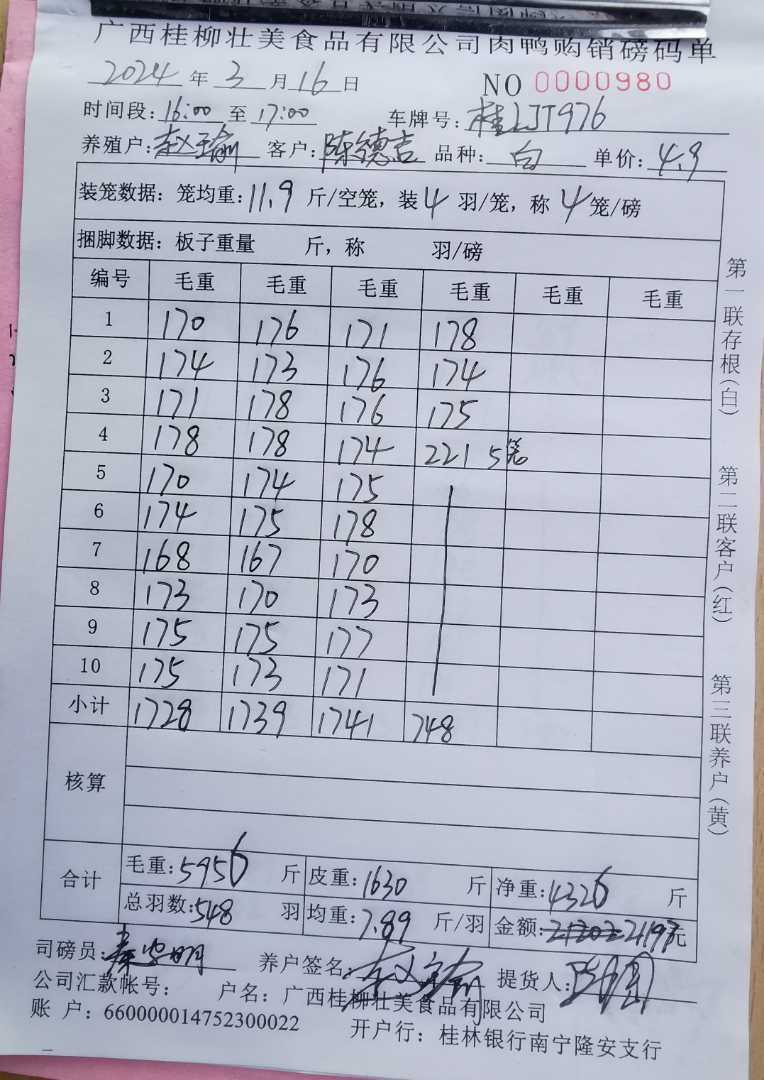 广西桂柳壮美食品有限公司肉鸭购销磅码单
2024年3月16日 NO 0000980
时间段:16:00至17:00 车牌号:桂LJT976
养殖户:赵瑜 客户:陈德吉 品种:白 单价:4.9
装笼数据:笼均重:11.9斤/空笼,装4羽/笼,称4笼/磅
捆脚数据:板子重量 斤,称 羽/磅
编号 毛重 毛重 毛重 毛重 毛重 毛重
1 170 176 171 178
2 174 173 176 174
3 171 178 176 175
4 178 178 174 221 5笼
5 170 174 175
6 174 175 178
7 168 167 170
8 173 170 173
9 175 175 177
10 175 173 171
小计 1728 1739 1741 748
核算
合计 毛重:5956斤 皮重:1630斤 净重:4326斤
总羽数:548羽 均重:7.89斤/羽 金额:21197元
司磅员: 养户签名: 提货人:
公司汇款帐号: 户名:广西桂柳壮美食品有限公司
账 户:660000014752300022 开户行:桂林银行南宁隆安支行
第一联存根(白) 第二联客户(红) 第三联养户(黄)